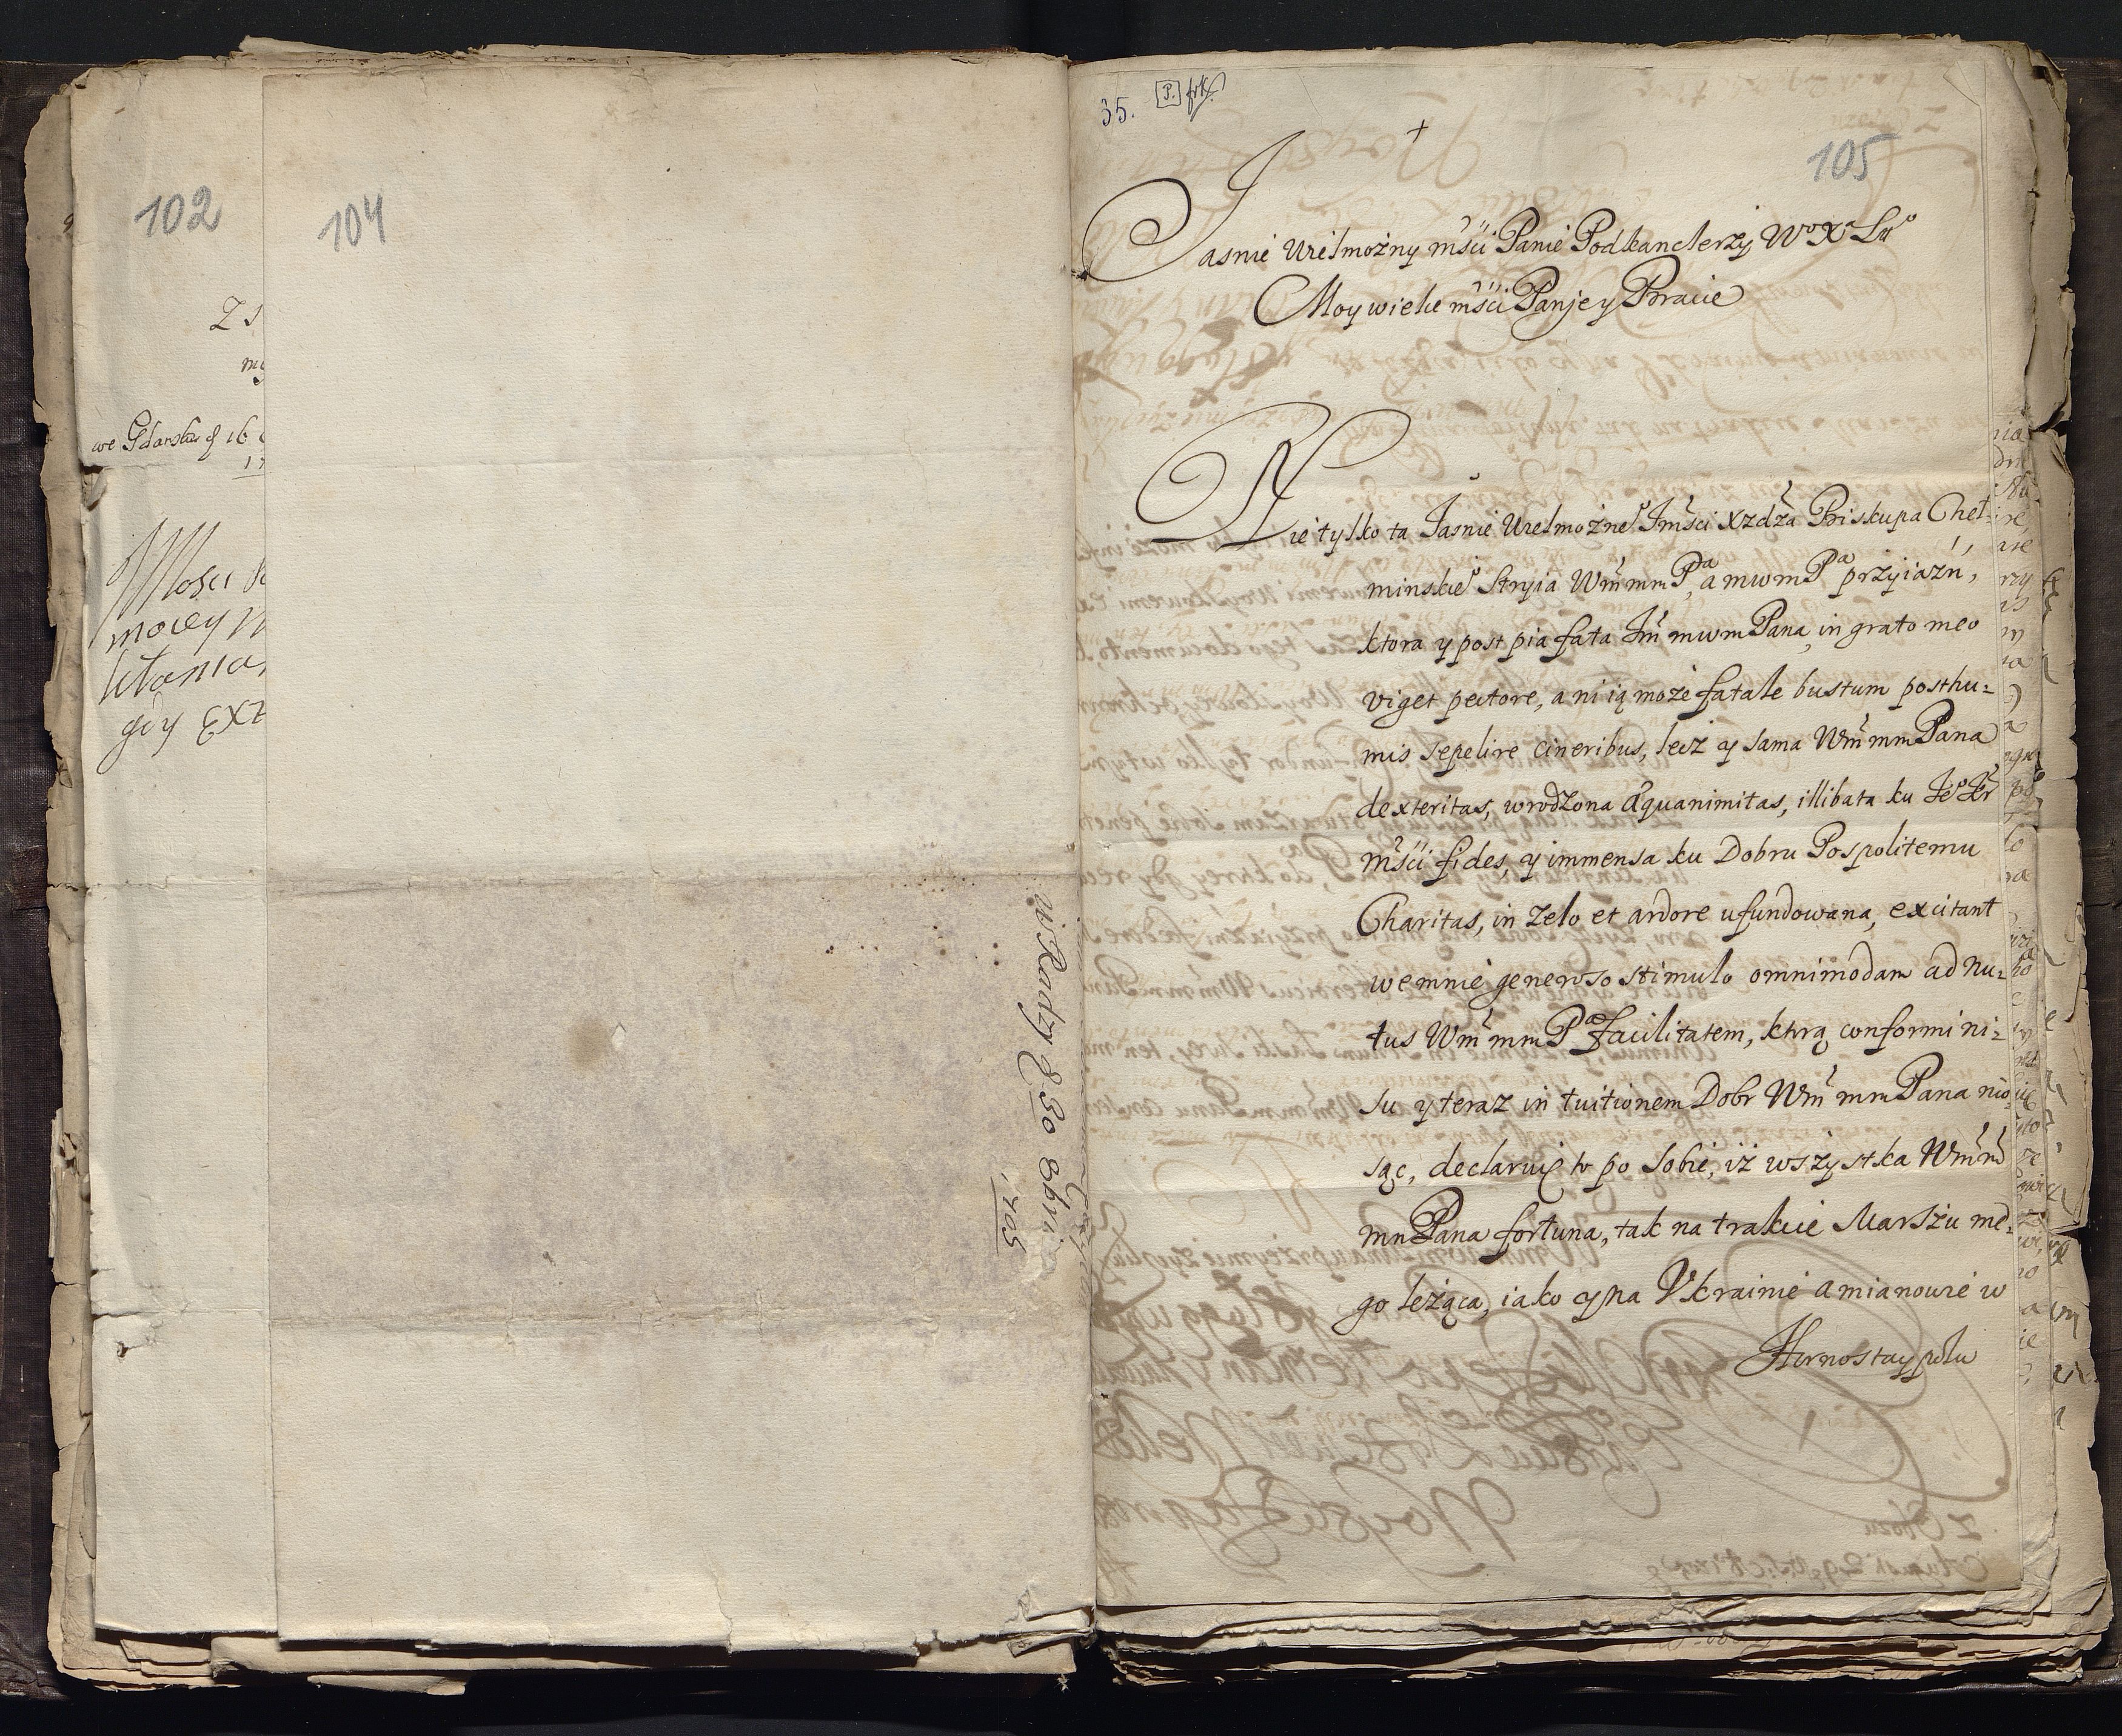 102
104
we Gdansku d 16
Mosci
mocey
gdy
w Rudzy d 30 8bris
1705
35.
P.
+
105
Jasnie Wielmożny mśći Panie Podkanclerzy Wo Xo Lo
Moy wielce mśći Panie y Bracie
Nie tylko ta Jasnie Wielmożneo Jmści Xzdza Biskupa Cheł-
minskieo Stryia Wm mm Pa, a mwm Pa przyiazń,
ktora y post pia fata Jm mwm Pana, in grato meo
viget pectore, ani ią może fatale bustum posthu=
mis sepelire cineribus, lecz y sama Wm mm Pana
dexteritas, wrodzona æquanimitas, illibata ku Jeo Kr
mśći fides, y immensa ku Dobru Pospolitemu
Charitas, in zelo et ardore ufundowana, excitant
we mnie generoso stimulo omnimodam ad nu=
tus Wm mm Pa facilitatem, ktorą conformi ni=
su y teraz in tuitionem Dobr Wm mm Pana nio=
sąc, declaruię to po sobie, iż wszystka Wm
mm Pana fortuna, tak na trakcie Marszu me=
go leżąca, iako y na Vkrainie a mianowie w
Hornostaypolu